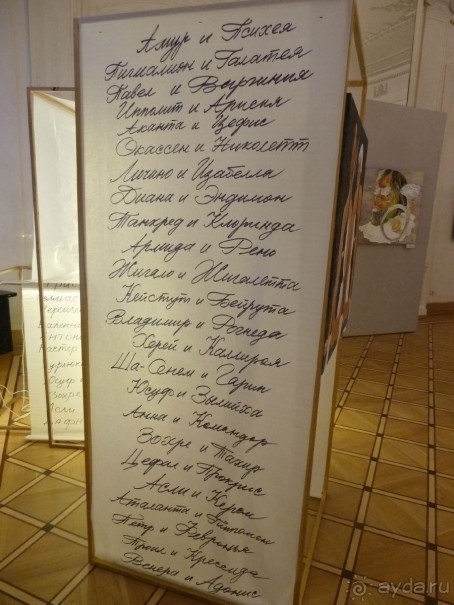 Амур и Психея
Пигмалион и Галатея
Павел и Виргиния
Ипполит и Арисия
Аканта и Цефис
Окассен и Николетт
Лючио и Изабелла
Диана и Эндимон
Танкред и Клоринда
Армида и Рено
Жигело и Жиголетта
Кейстут и Бейрута
Владимир и Рогнеда
Херей и Каллироя
Ша-Сенем и Гарип
Юсуф и Зылийха
Анна и Командор
Зохре и Тагир
Цефал и Прокрис
Асли и Керем
Аталанта и
Пётр и Февронья
Троил и Крессида
Венера и Адонис
Мастер
ayda.ru